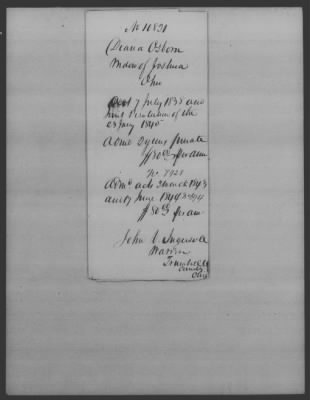 No 10821
Diana Osborn
Widow of Joshua
Ohio
Act 7 July 1838 and
Joint Resolution of the
23 Jany 1845
Private
$80 per ann
No 7921
Adm.d act 3 March 1843
and 17 June 1844
$80 per an
John Ingersoll
Warren
Trumbull
County
Ohio